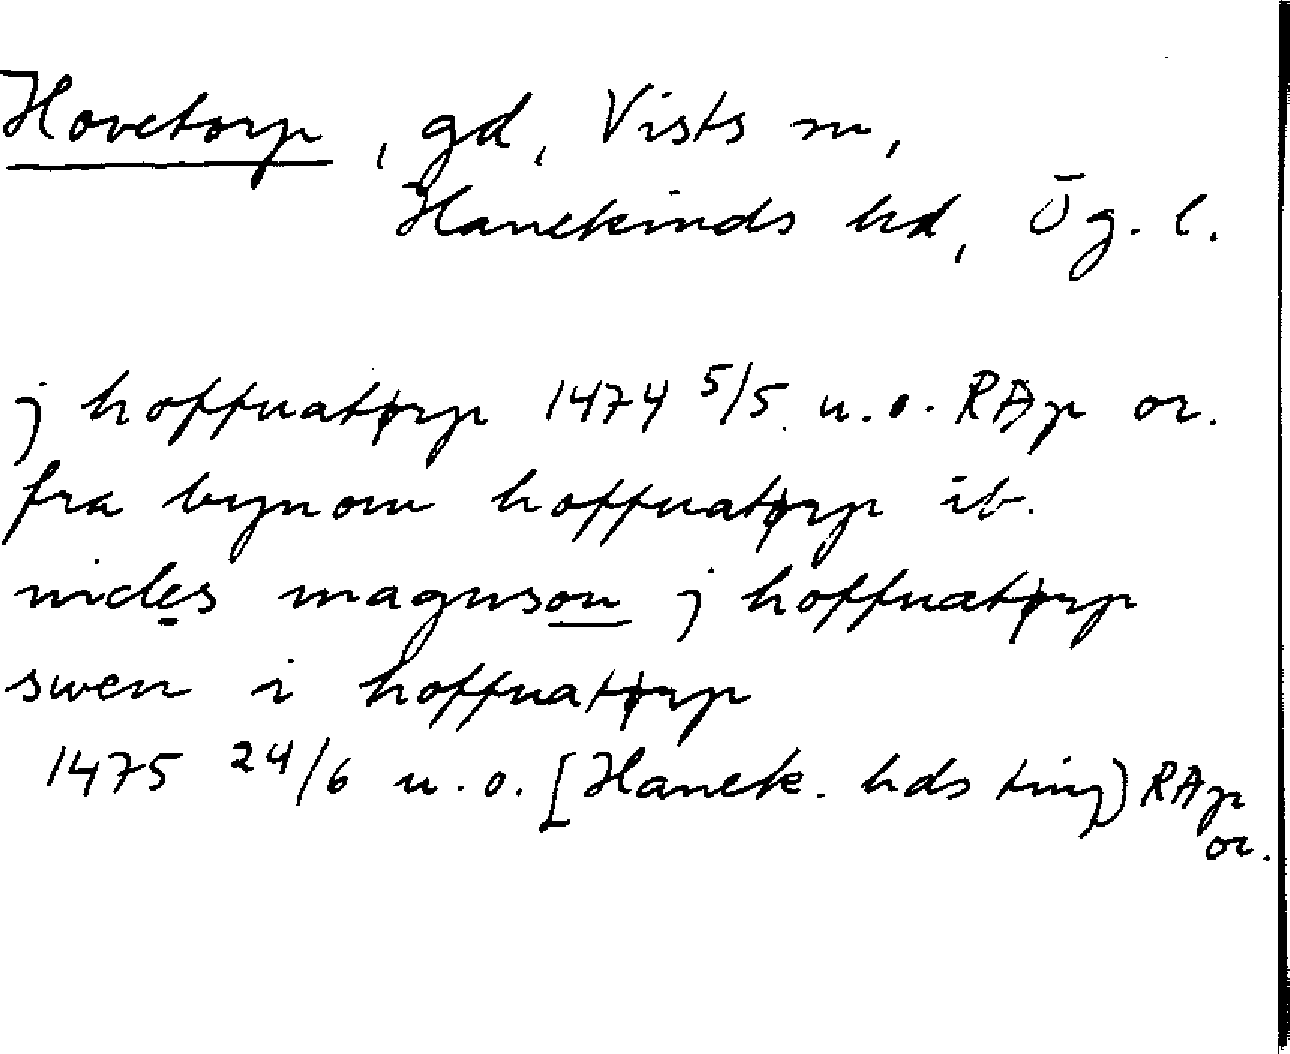 Hovetorp, gd, Vists sn,
Hanekinds hd, Ög. l.
j hoffuatørp 1474 5/5 u.o. RAp or.
fra bynom hoffuatørp ib.
nicles magnson j hoffuatørp
swen i hoffuatørp
1475 24/6 u.o. [Hanek. hds ting) RAp
or.